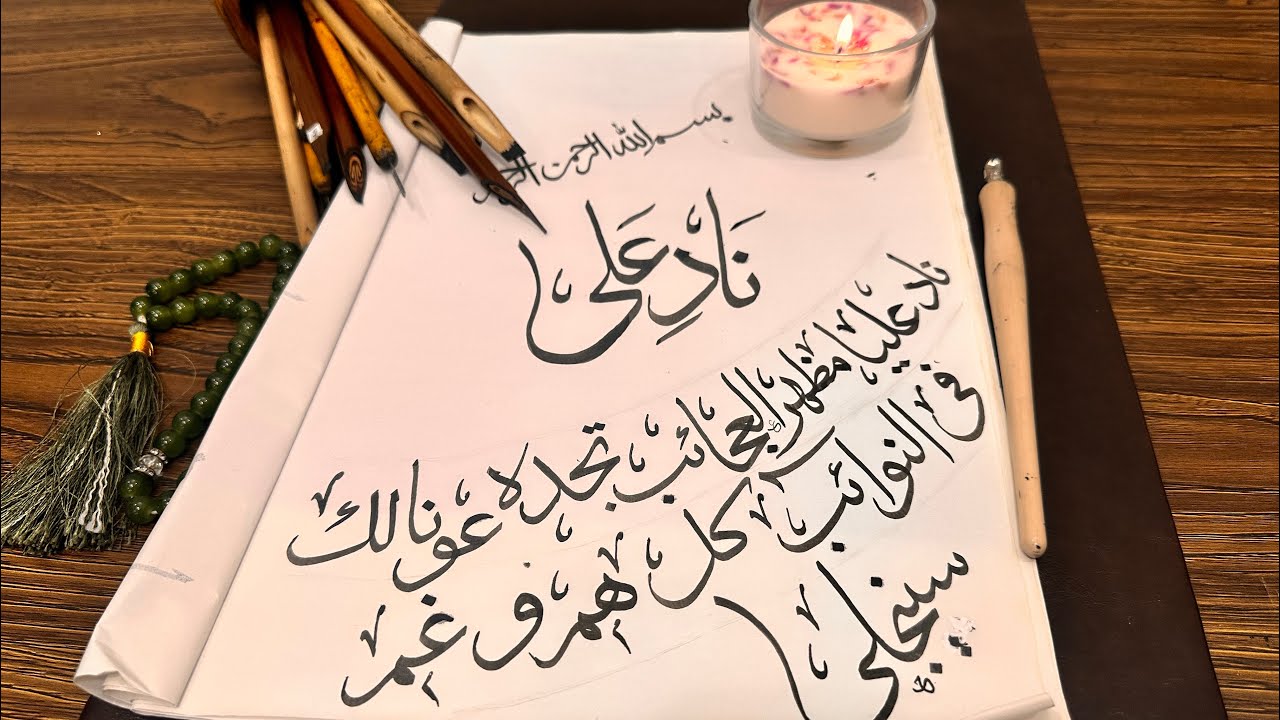 بسم الله الرحمن الرحيم
نَادِ عَلی
ناد علیا مظهر العجائب تجده عونا لك
فی النوائب كل هم و غم
سینجلی